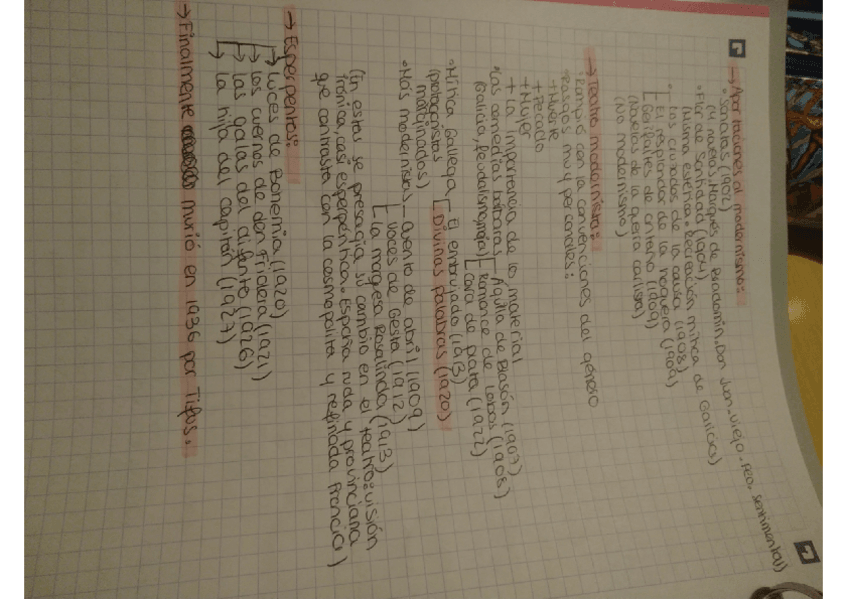 → Aportaciones al modernismo:
• Sonatas (1902)
(4 nuevas. Marqués de Bradomín. Don Juan_viejo_feo_sentimental)
• Flor de Santidad (1904)
(Misma estética. Recreación mítica de Galicia)
• Los cruzados de la causa (1908)
El resplandor de la hoguera (1909)
Gerifaltes de antaño (1909)
(Novelas de la guerra carlista)
(No modernismo)
→ Teatro modernista:
• Rompió con la convenciones del género
Rasgos muy personales:
+ Muerte
+ Pecado
+ Mujer
+ La importancia de lo material
• Las comedias bárbaras
Galicia, feudalismo, magia)
Águila de Blasón (1907)
Romance de Lobos (1908)
Cara de plata (1922)
• Mítica Gallega
(protagonistas
marginados)
El embrujado (1913)
Divinas palabras (1920)
• Más modernistas_ cuento de abril (1909)
Voces de Gesta (1912)
La marquesa Rosalinda (1913)
(En estas se presagia su cambio en el teatro: visión
irónica, casi esperpéntica. España ruda y provinciana
que contrasta con la cosmopolita y refinada Francia)
→ Esperpentos:
→ Luces de Bohemia (1920)
→ Los cuernos de don Friolera (1921)
→ Las galas del difunto (1926)
→ La hija del capitán (1927)
→ Finalmente murió en 1936 por Tifus.